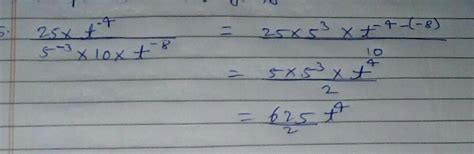 5. 25 × t⁻⁴ / 5⁻³ × 10 × t⁻⁸ = 25 × 5³ × t⁻⁴⁻⁽⁻⁸⁾ / 10
= 5 × 5³ × t⁴ / 2
= 625 / 2 t⁴